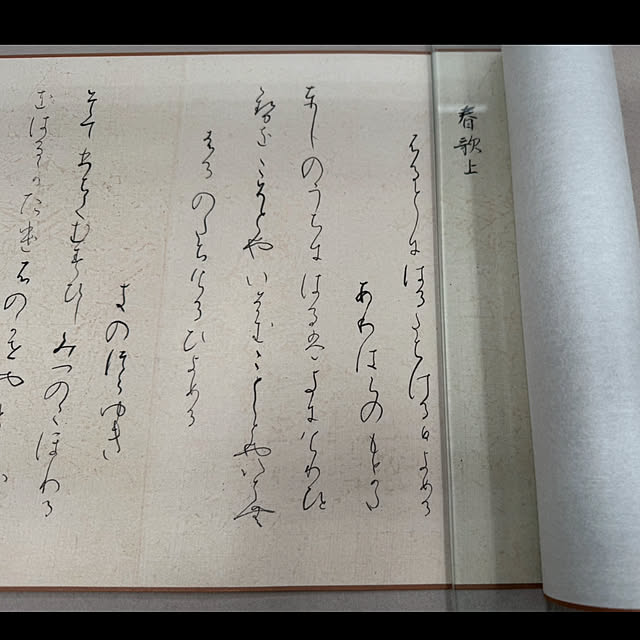 春歌上
ふるとしにはるたちける日よめる
ありはらのもとかた
としのうちにはるはきにけりひと
ゝせをこそとやいはむことしとやいはむ
はるのたちけるひよめる
きのつらゆき
そてひちてむすひしみつのこほれる
をはるかたつけふのかせや